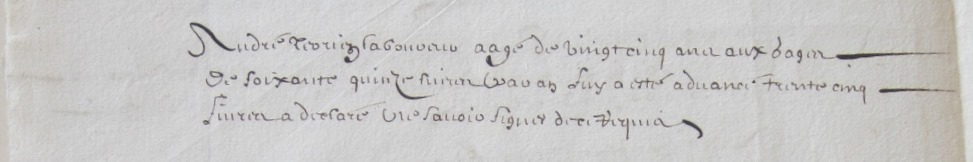 André Poirier laboureur aagé de vingt cinq ans aux gages
de soixante quinze livres Par an Luy a esté advancé trente cinq
livres a declaré ne savoir signer de ce requis